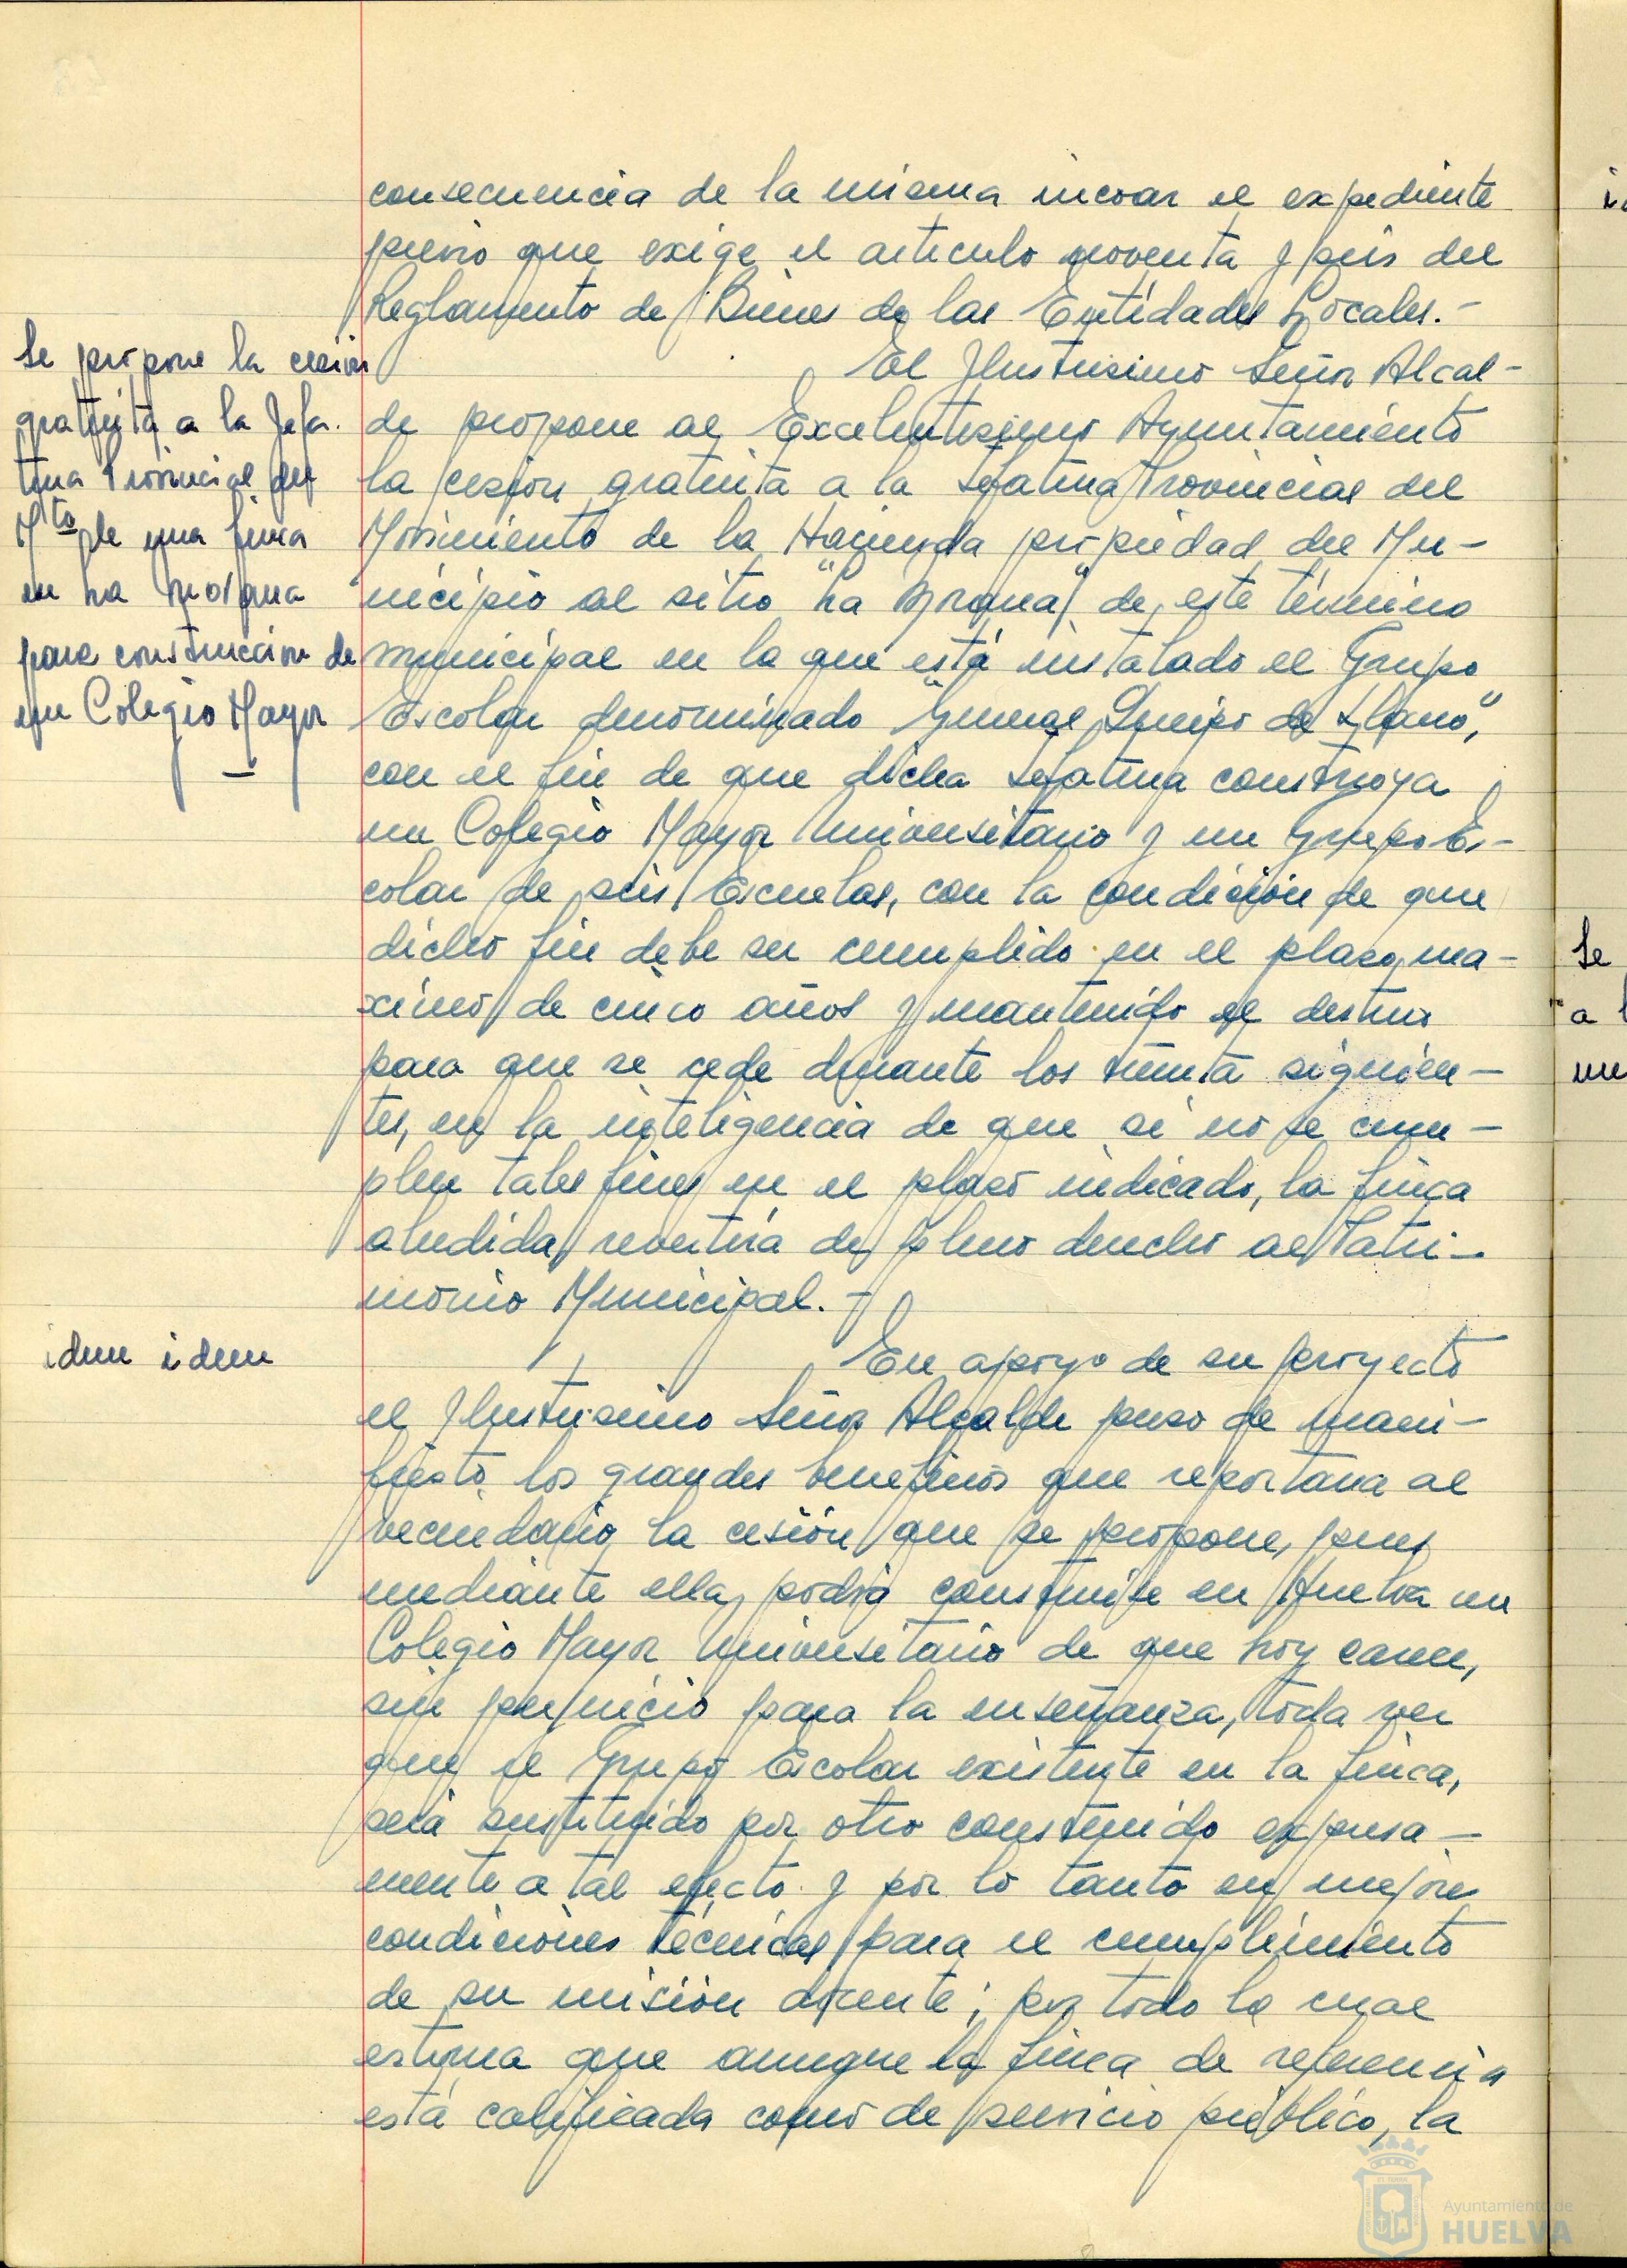 consecuencia de la misma incoar el expediente
previo que exige el articulo noventa y seis del
Reglamento de Bienes de las Entidades Locales.-
Se propone la cesion
gratuita a la Jefa-
tura Provincial del
Mto de una finca
en La
para construccion de
un Colegio Mayor
El Ilustrisimo Señor Alcal-
de propone al Excelentisimo Ayuntamiento
la cesion gratuita a la Jefatura Provincial del
Movimiento de la Hacienda propiedad del Mu-
nicipio al sitio "La de este término
municipal en la que está instalado el Grupo
Escolar denominado "General Queipo de Llano",
con el fin de que dicha Jefatura construya
un Colegio Mayor Universitario y un Grupo Es-
colar de seis Escuelas, con la condición de que
dicho fin debe ser cumplido en el plazo ma-
ximo de cinco años y mantenido el destino
para que se cede durante los treinta siguien-
tes, en la inteligencia de que si no se cum-
plen tales fines en el plazo indicado, la finca
aludida revertirá de pleno derecho al Patri-
monio Municipal.-
idem idem
En apoyo de su proyecto
el Ilustrisimo Señor Alcalde puso de mani-
fiesto los grandes beneficios que reportaria al
vecindario la cesión que se propone, pues
mediante ella, podria construirse en Huelva un
Colegio Mayor Universitario de que hoy carece,
sin perjuicio para la enseñanza, toda vez
que el Grupo Escolar existente en la finca,
será sustituido por otro construido expresa-
mente a tal efecto y por lo tanto en mejores
condiciones técnicas para el cumplimiento
de su misión docente; por todo lo cual
estima que aunque la finca de referencia
está calificada como de servicio público, la
Se
a l
un
Ayuntamiento de
HUELVA